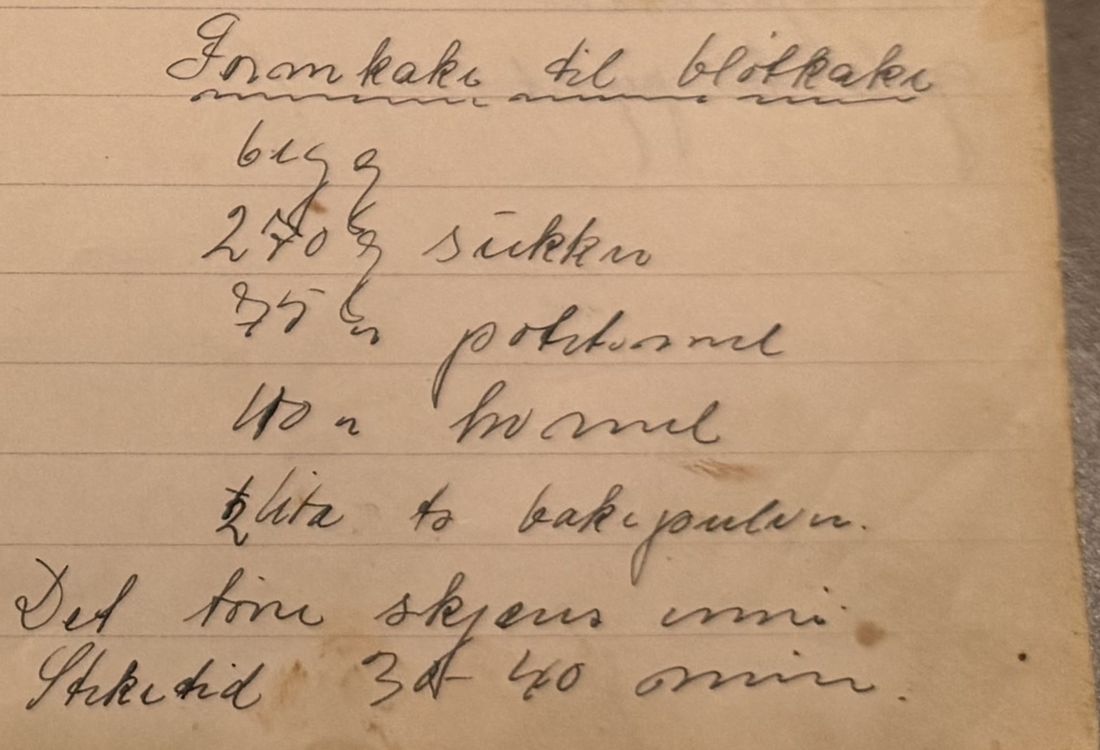 Formkake til bløtkake
6 egg
270 g sukker
75 g potetmel
110 " hvmel
2 lita ts bakepulver.
Det tørre skjæres inni.
Steketid 30-40 min.